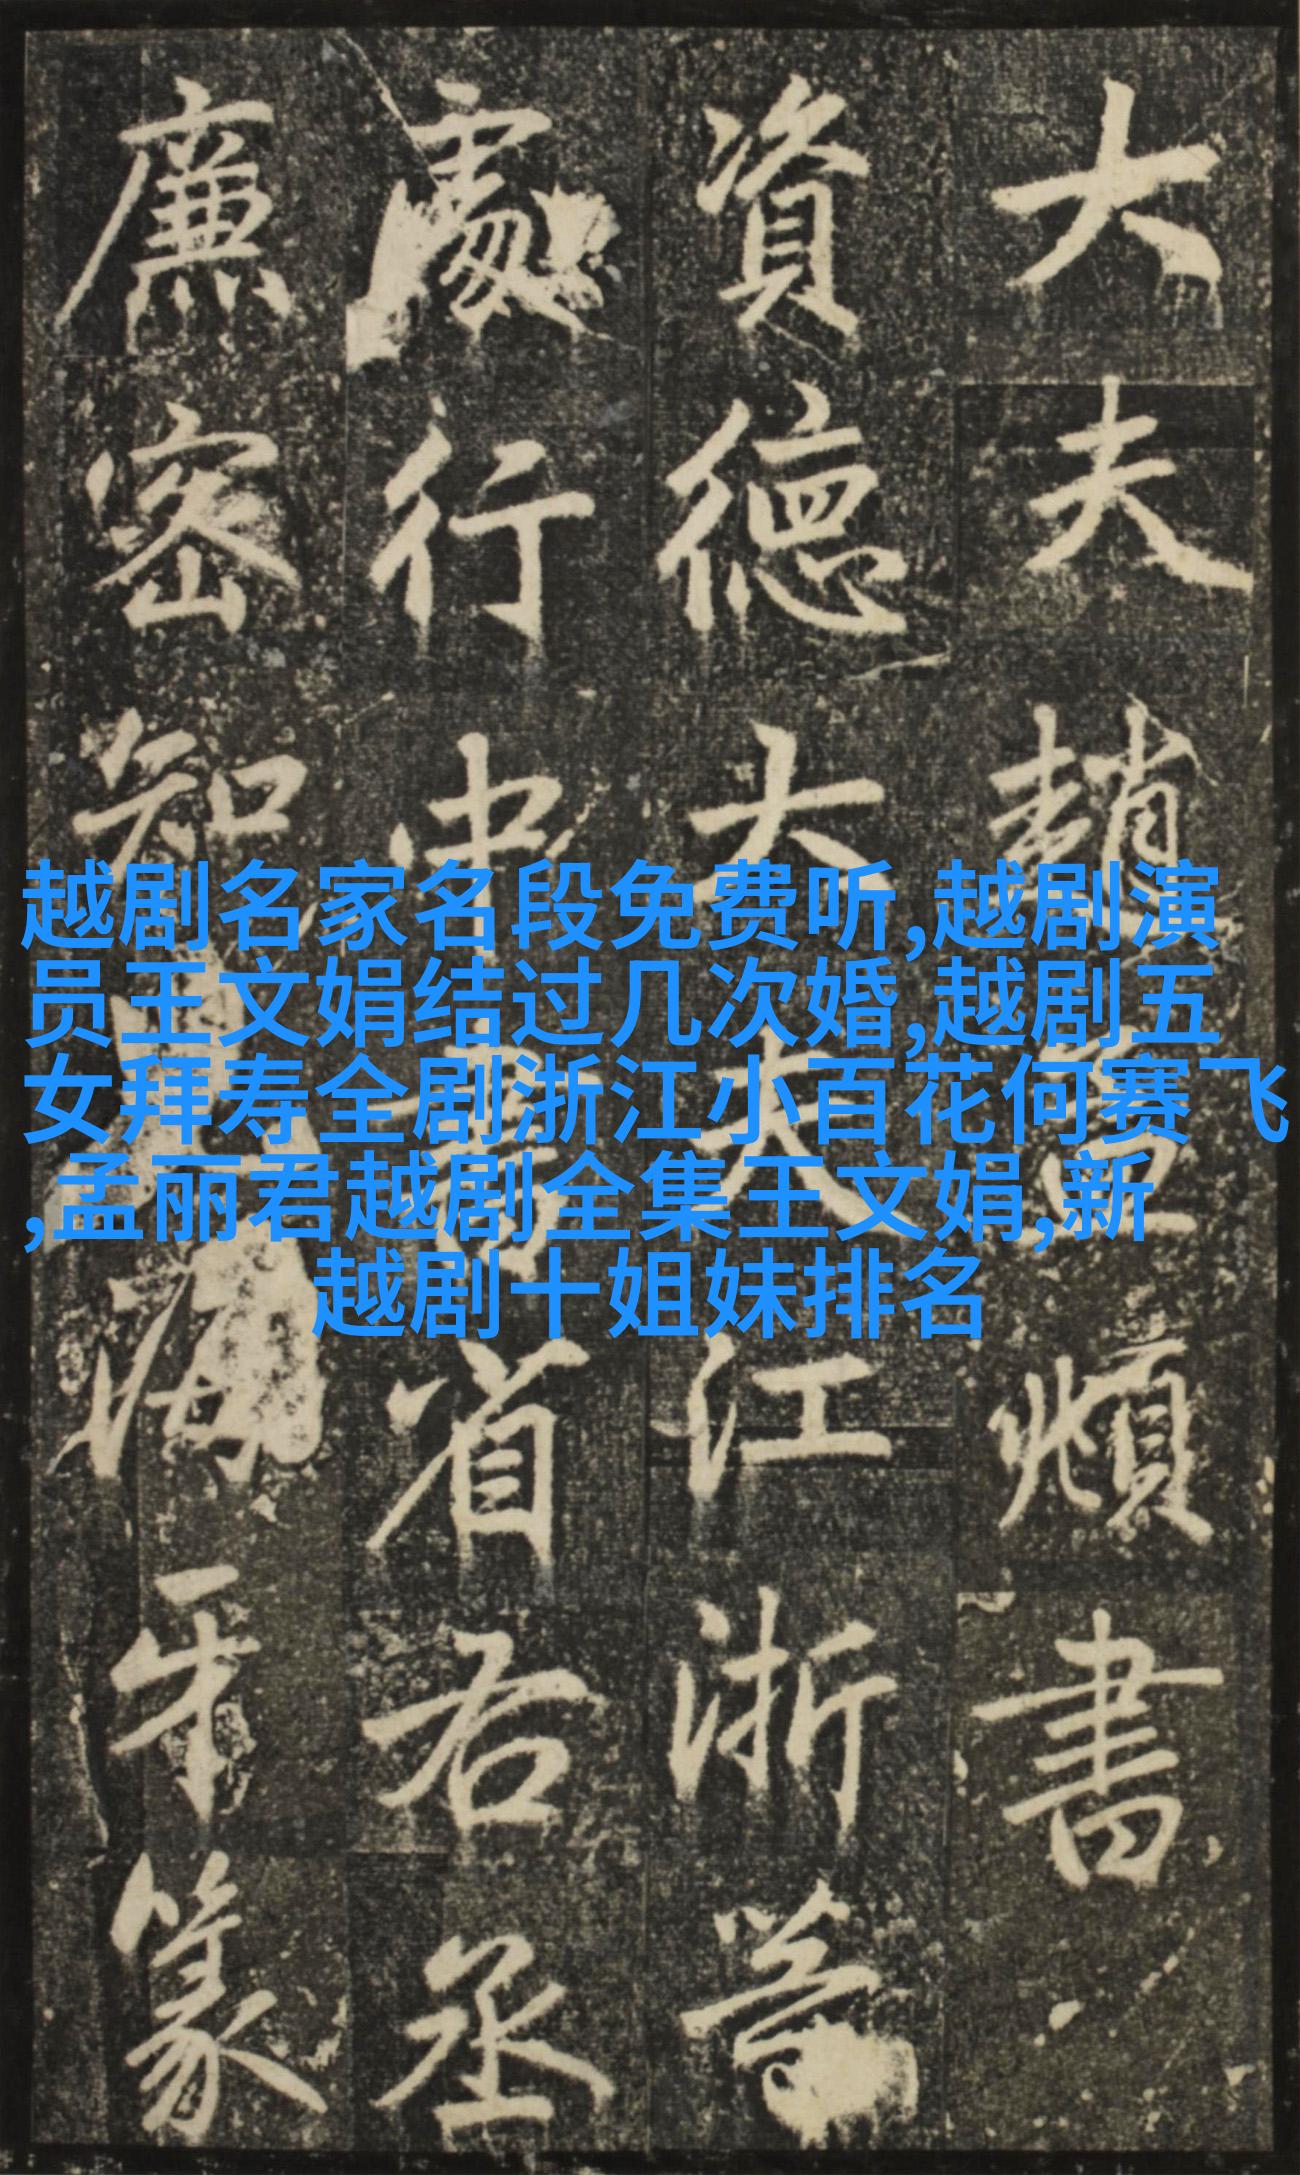 越剧名家名段免费听,越剧演
员王文娟结过几次婚,越剧五
女拜寿全剧浙江小百花何赛飞
,孟丽君越剧全集王文娟,新
越剧十姐妹排名
大夫趙孟頫書
資德大夫江浙等
處行中書省右丞
廉密知海牙篆